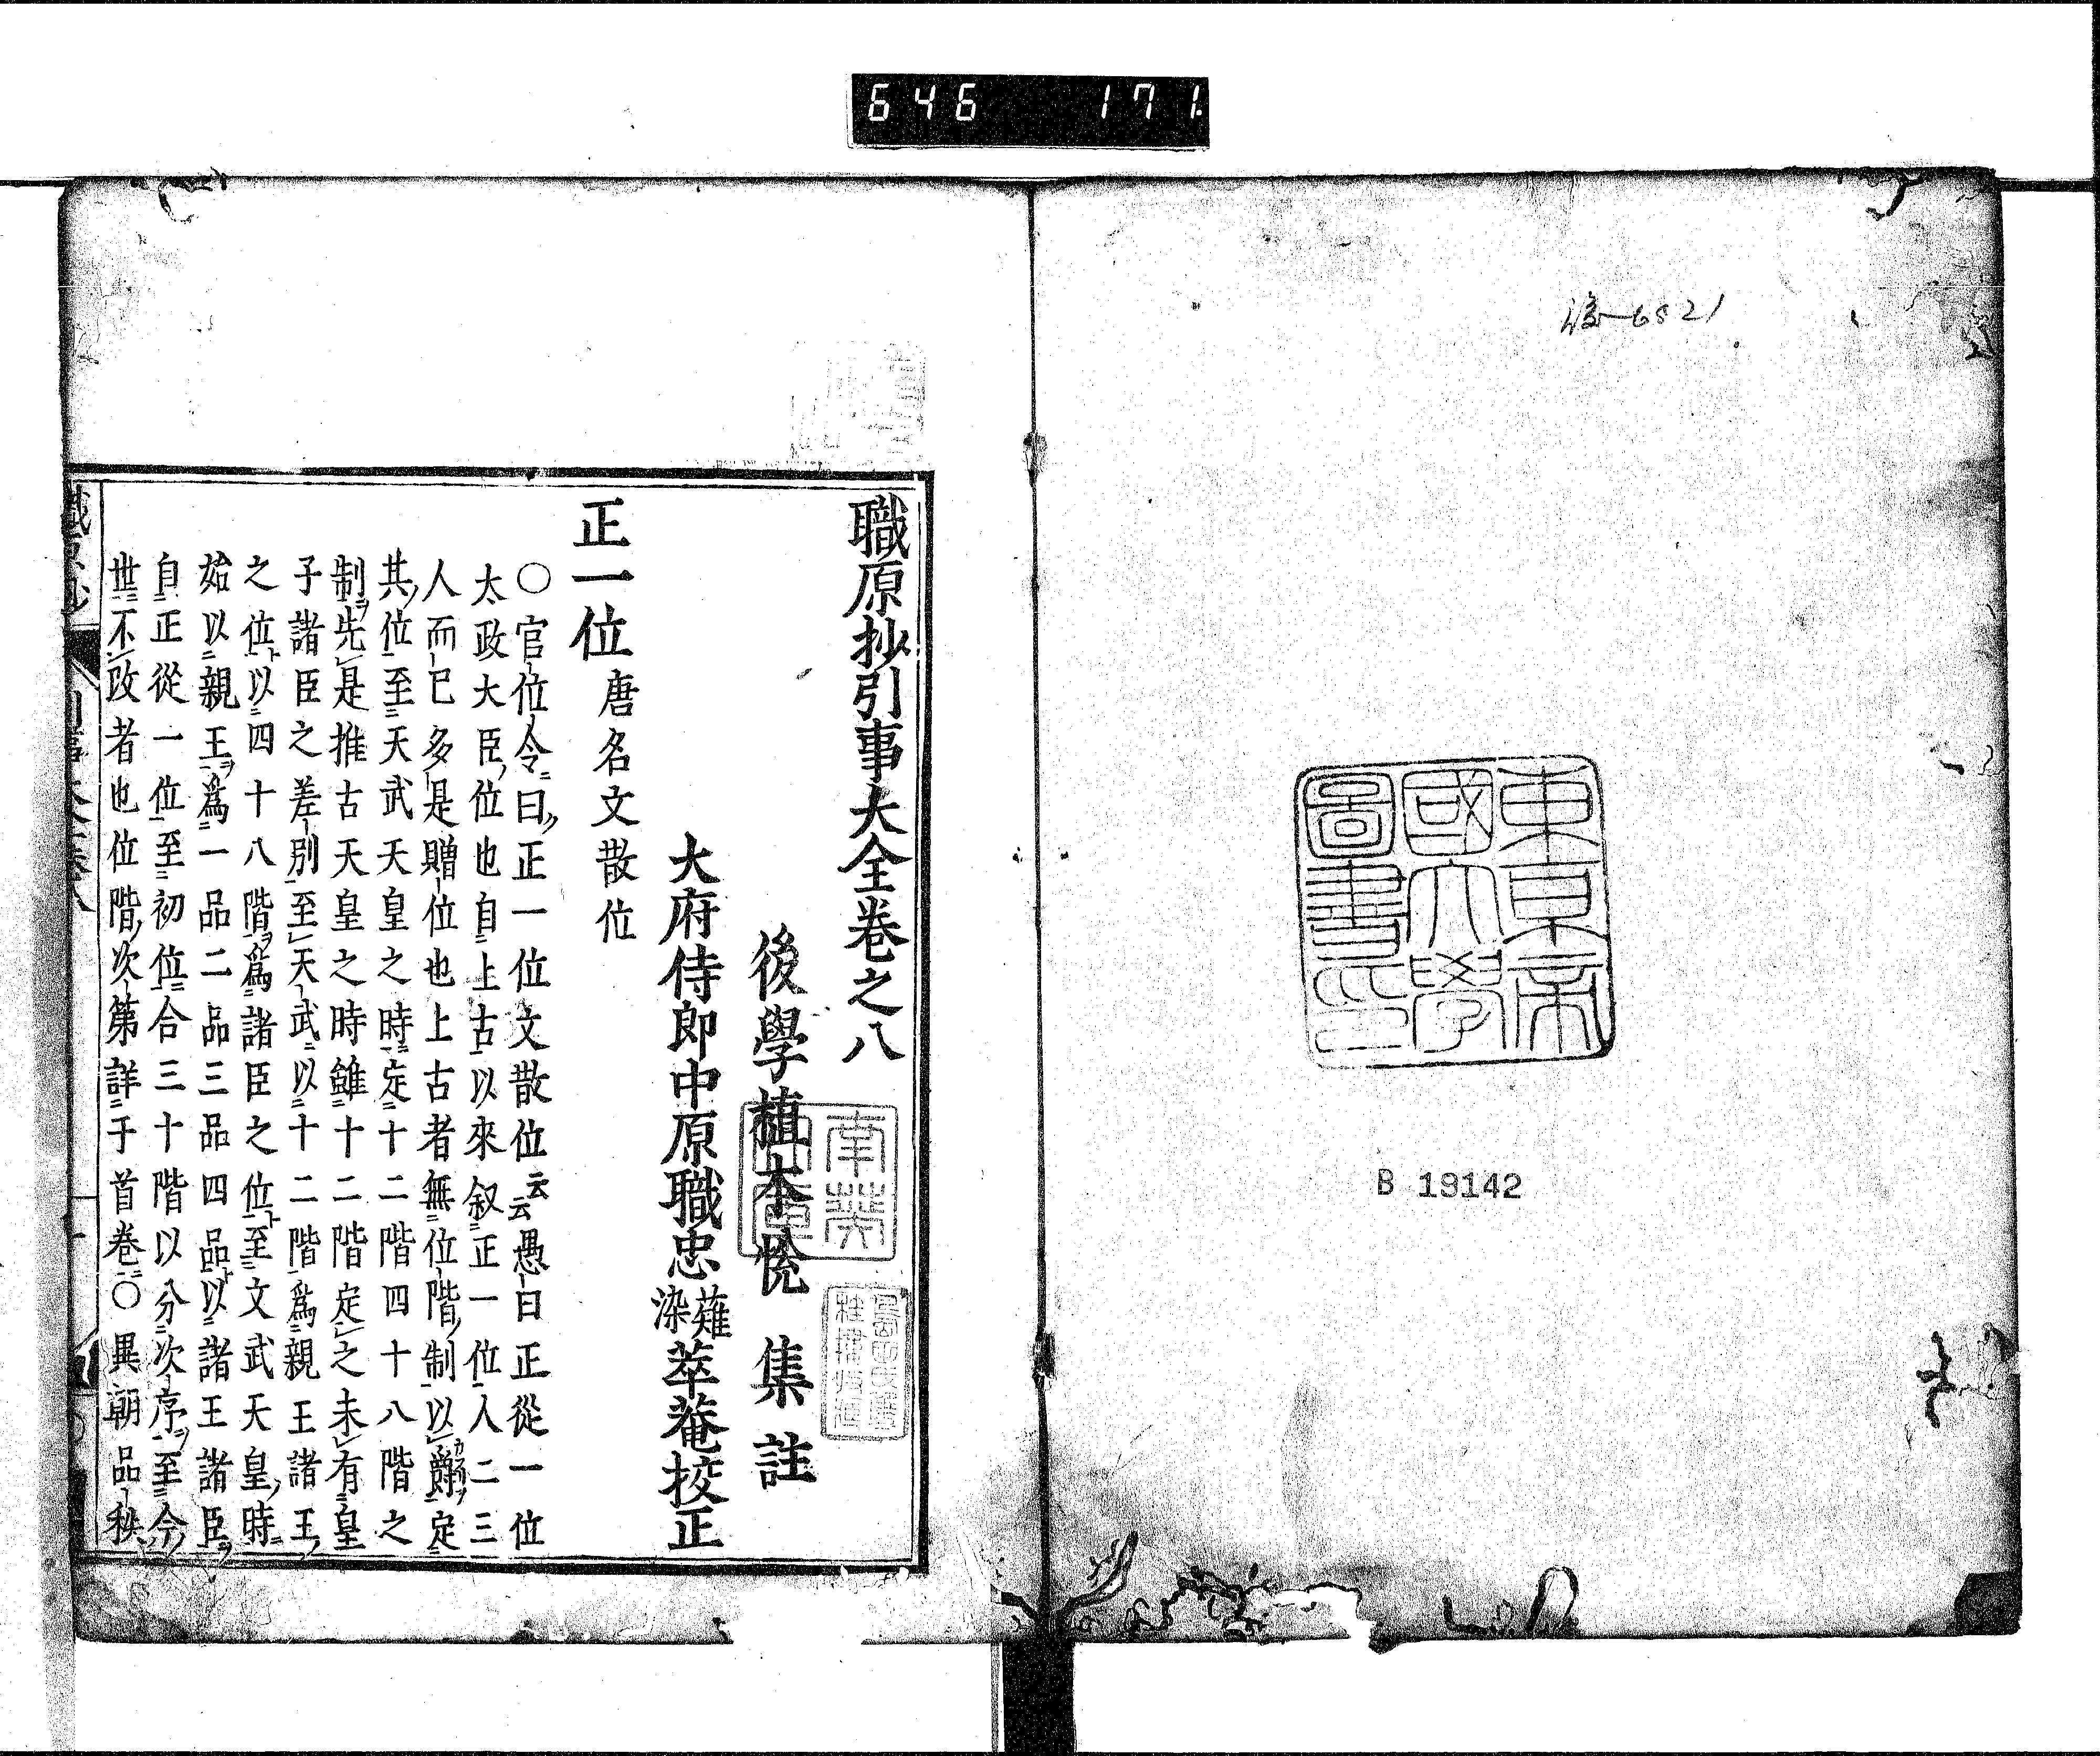 646 171
後-6821
東京帝
國大學
圖書印
B 19142
職原抄引事大全卷之八
後學植木悦 集註
大府侍郎中原職忠薙染萃菴挍正
正一位唐名文散位
○官位令曰正一位文散位云云愚曰正從一位
太政大臣位也自上古以來叙正一位人二三
人而已多是贈位也上古者無位階制以爵定
其位至天武天皇之時定十二階四十八階之
制先是推古天皇之時雖十二階定之未有皇
子諸臣之差別至天武以十二階爲親王諸王
之位以四十八階爲諸臣之位至文武天皇時
始以親王爲一品二品三品四品以諸王諸臣
自正從一位至初位合三十階以分次序至今
世不改者也位階次第詳于首卷○異朝品秩